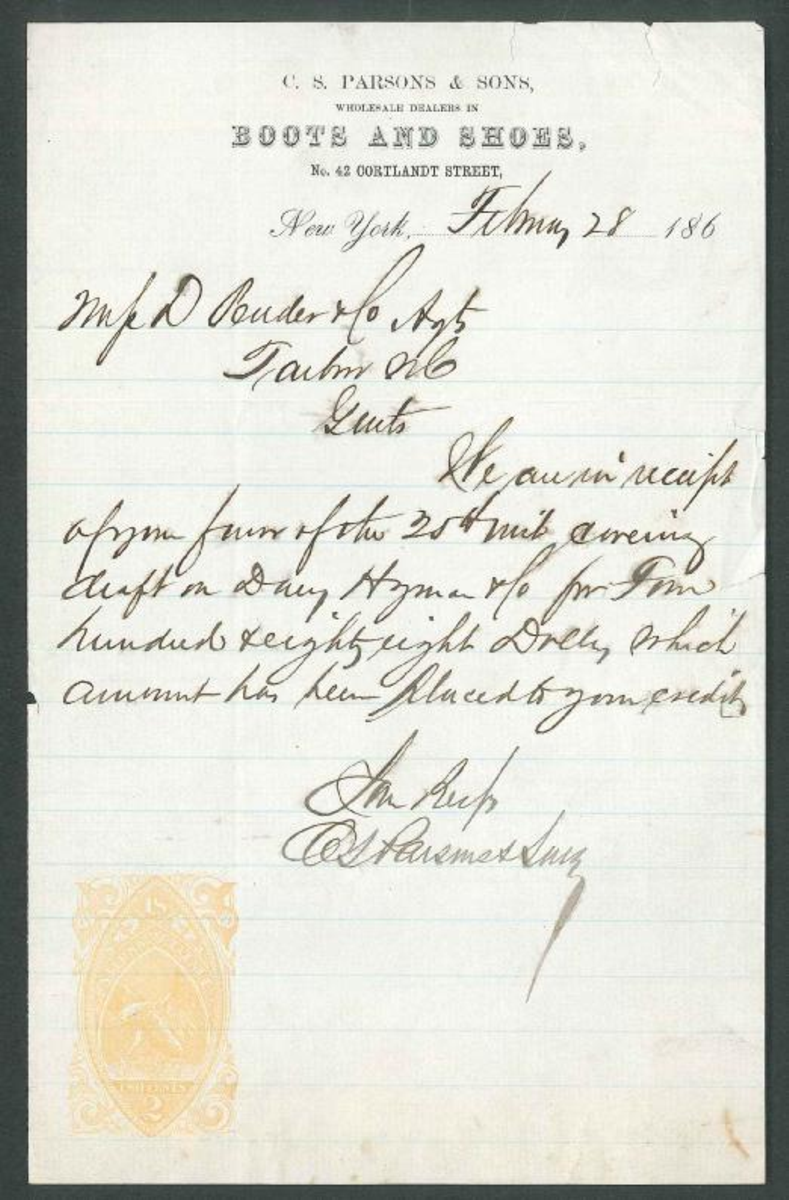 C. S. PARSONS & SONS,
WHOLESALE DEALERS IN
BOOTS AND SHOES,
No. 42 CORTLANDT STREET,
New York, February 28 186
D & Co Agts
N C
Gents
We are in receipt
of your favor of the 25th covering
draft on Hyman & Co for Four
hundred & eighty eight Dolls, which
amount has been placed to your credit
C S Parsons & Sons
U.S.
TWO CENTS
2